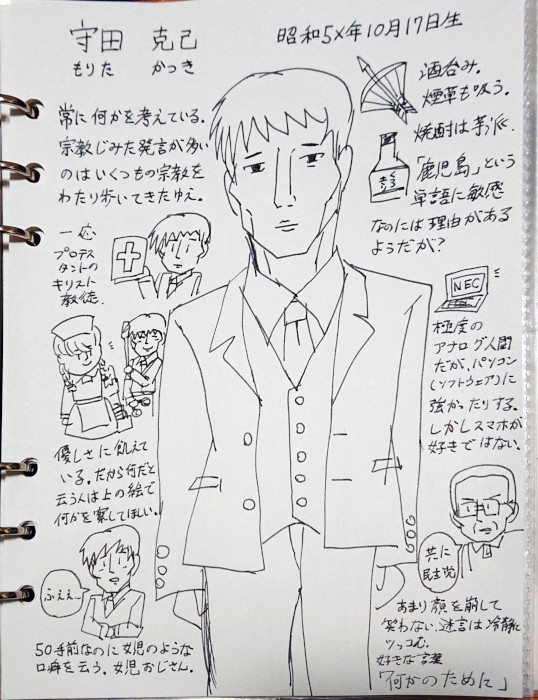 守田 克己
もりた かつき
昭和5X年10月17日生
常に何かを考えている。
宗教じみた発言が多い
のはいくつもの宗教を
わたり歩いてきたゆえ。
一応
プロテス
タントの
キリスト
教徒。
優しさに飢えて
いる。だから何だと
云う人は上の絵で
何かを察してほしい。
ふええ〜
50手前なのに女児のような
口癖を云う。女児おじさん。
酒呑み。
煙草も吸う。
焼酎は芋派。
「鹿児島」という
単語に敏感
なのには理由がある
ようだが?
NEC
極度の
アナログ人間
だが、パソコン
(ソフトウェア)に
強かったりする。
しかしスマホが
好きではない。
共に
民主党
あまり顔を崩して
笑わない。迷言は冷静に
ツッコむ。
好きな言葉
「何かのために」